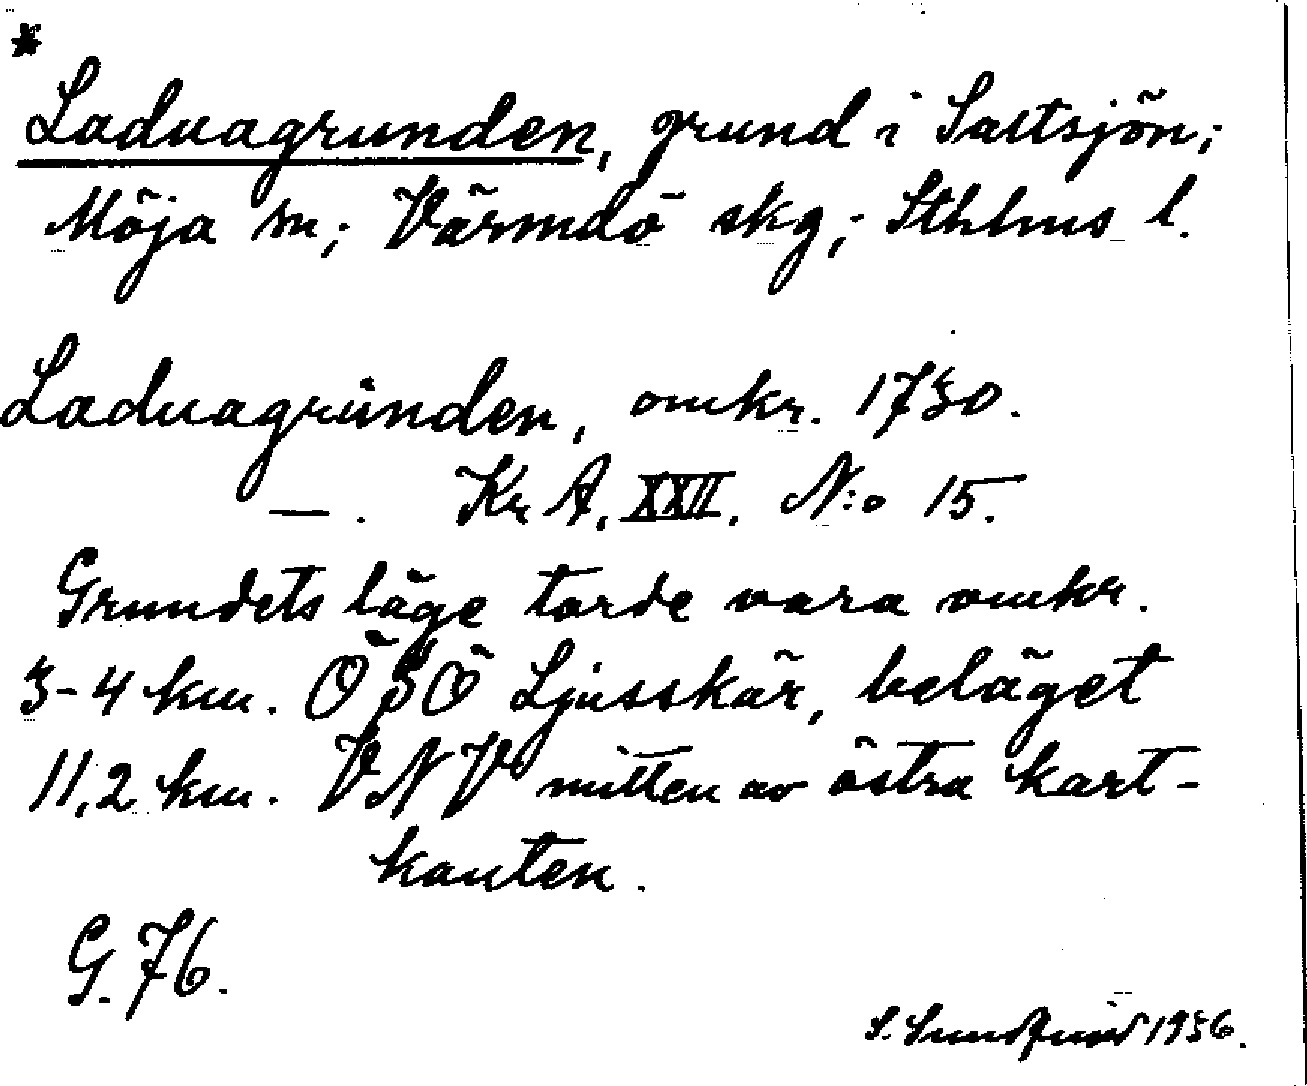 *
Laduagrunden, grund i Saltsjön;
Möja sn; Värmdö skg; Sthlms l.
Laduagrúnden, omkr. 1730.
— . Kr A, XXII. N:o 15.
Grundets läge torde vara omkr.
3-4 km. ÖSÖ Ljusskär, beläget
11,2 km. VNV mitten av östra kart-
kanten.
G. 76.
S. 1936.